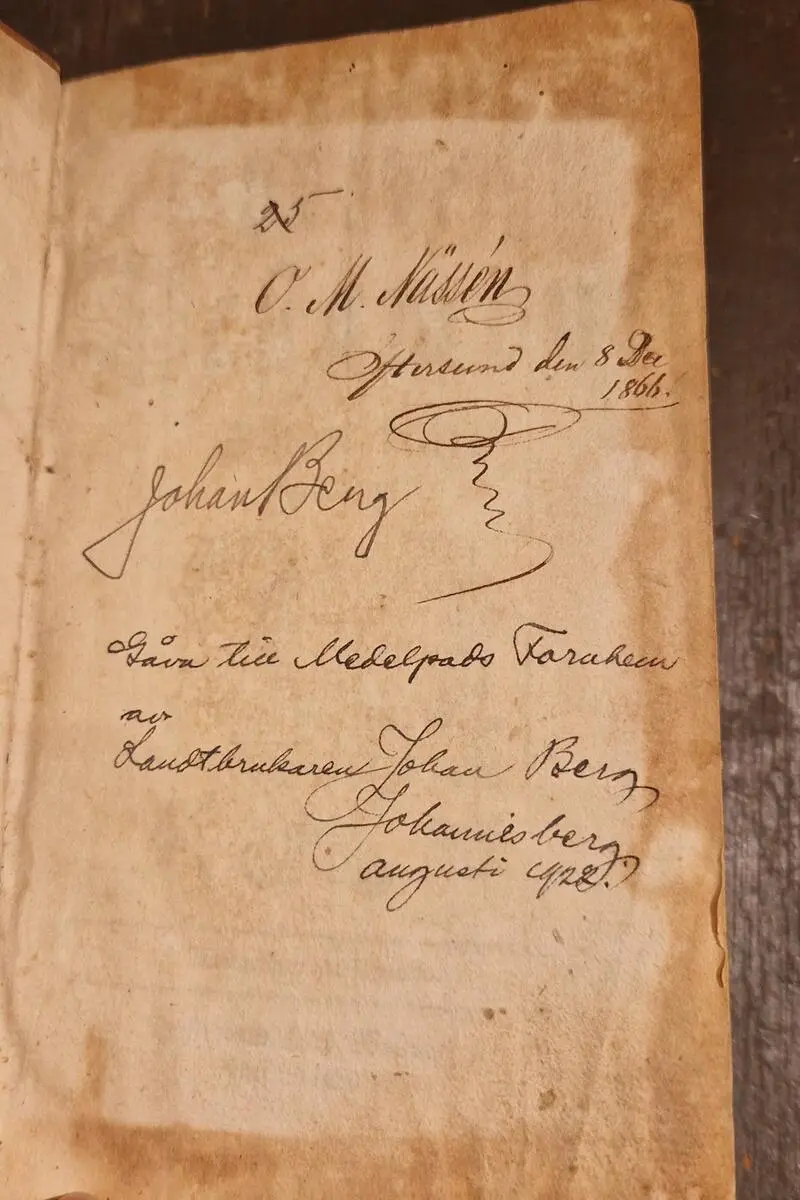 25
O. M. Nässén
Östersund den 8 Dec
1866.
Johan Berg
Gåva till Medelpads Fornhem
av
Landtbrukaren Johan Berg
Johannesberg
augusti 1922.